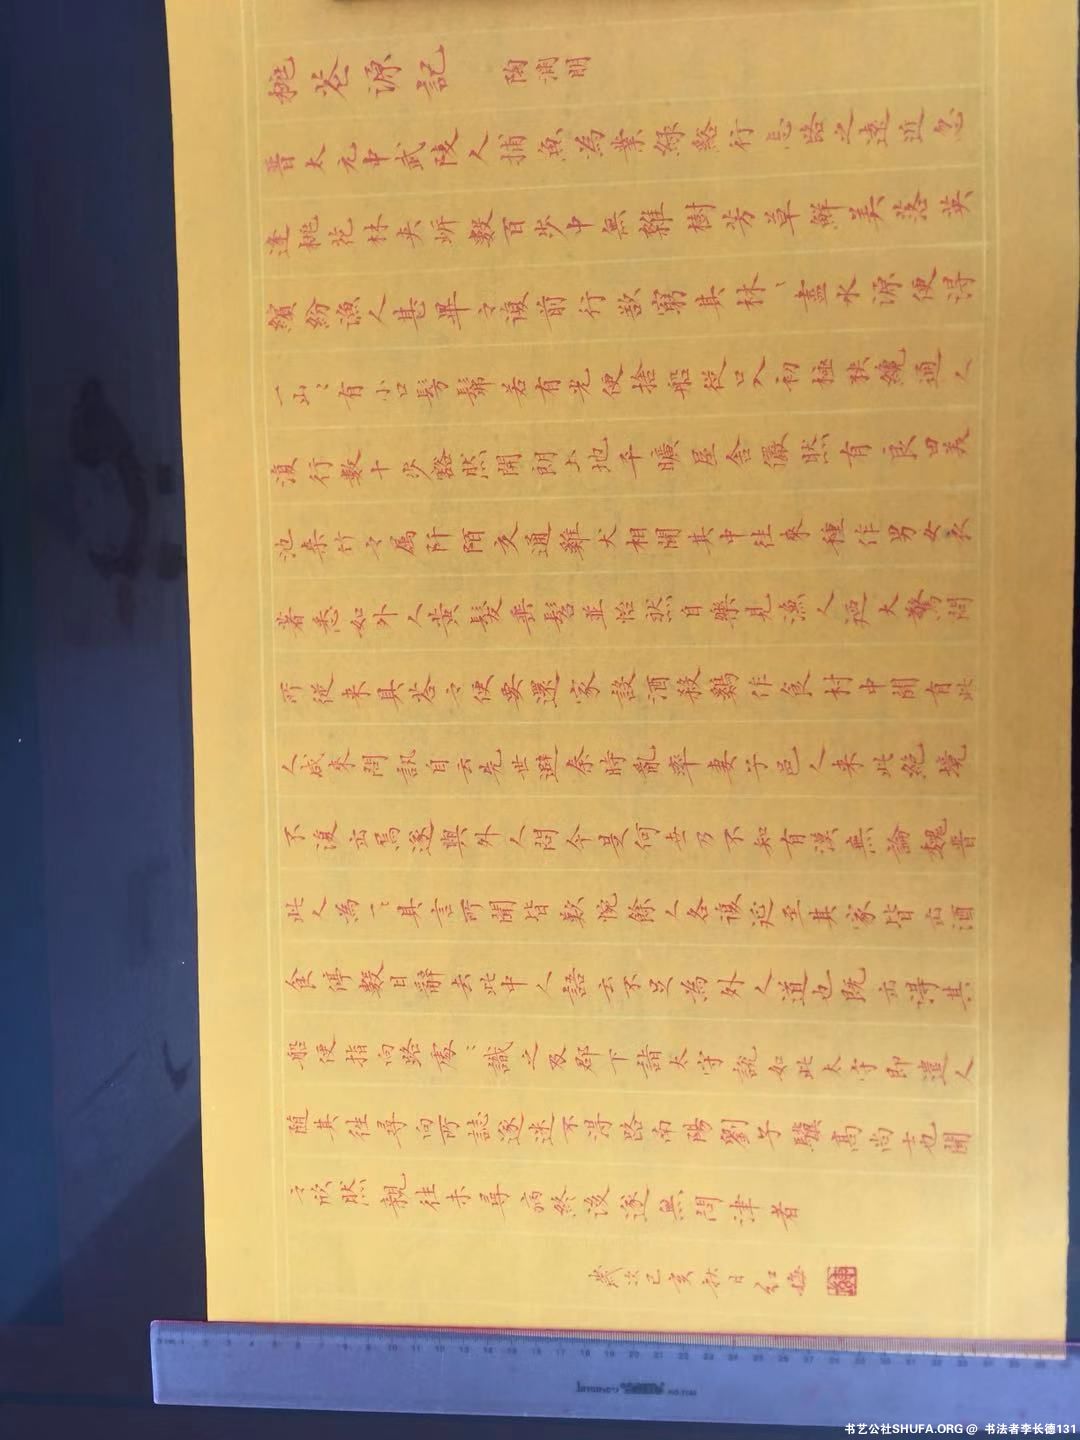 桃花源記 陶淵明
晋太元中武陵人捕魚為業緣谿行忘路之遠近忽
逢桃花林夹岍數百步中無雜樹芳草鮮美落英
繽紛漁人甚異之復前行欲窮其林〻盡水源便得
一山〻有小口髣髴若有光便捨船従口入初極狹纔通人
復行數十步豁然開朗土地平曠屋舍儼然有良田美
池桑竹之属阡陌交通雞犬相聞其中往來種作男女衣
著悉如外人黄髮垂髫並怡然自樂見漁人迺大驚問
所従来具荅之便要還家設酒殺鷄作食村中聞有此
人咸來問訊自云先世避秦時亂率妻子邑人来此絶境
不復出焉遂與外人問今是何世乃不知有漢無論魏晋
此人為一〻具言所聞皆歎惋餘人各復延至其家皆出酒
食停數日辭去此中人語云不足為外人道也既出得其
船便指向路處〻識之及郡下詣太守說如此太守即遣人
随其往尋向所誌遂迷不得路南陽劉子驥高尚士也聞
之欣然親往未尋病終後遂無問津者
歲次己亥秋日红梅
书艺公社SHUFA.ORG @ 书法者李长德131